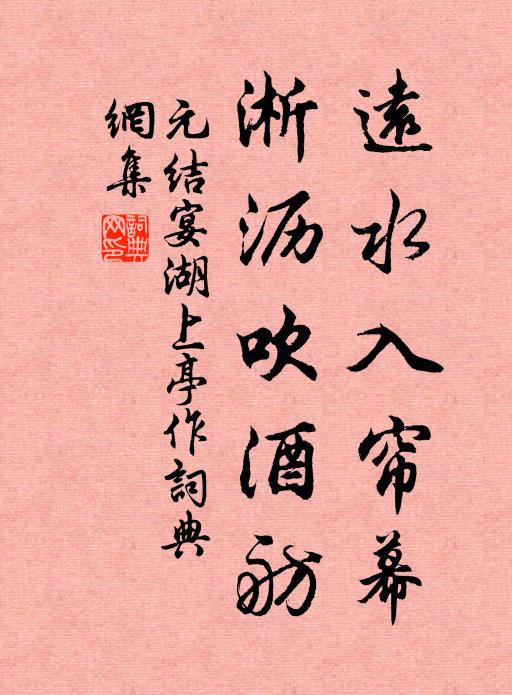 遠水入帘幕
淅沥吹酒舫
元结宴湖上亭作詞典
網集
詞典
网印